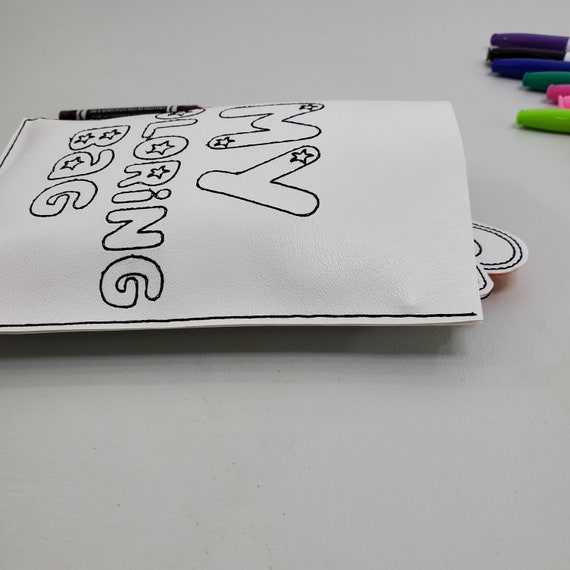 MY
COLORING
BaG